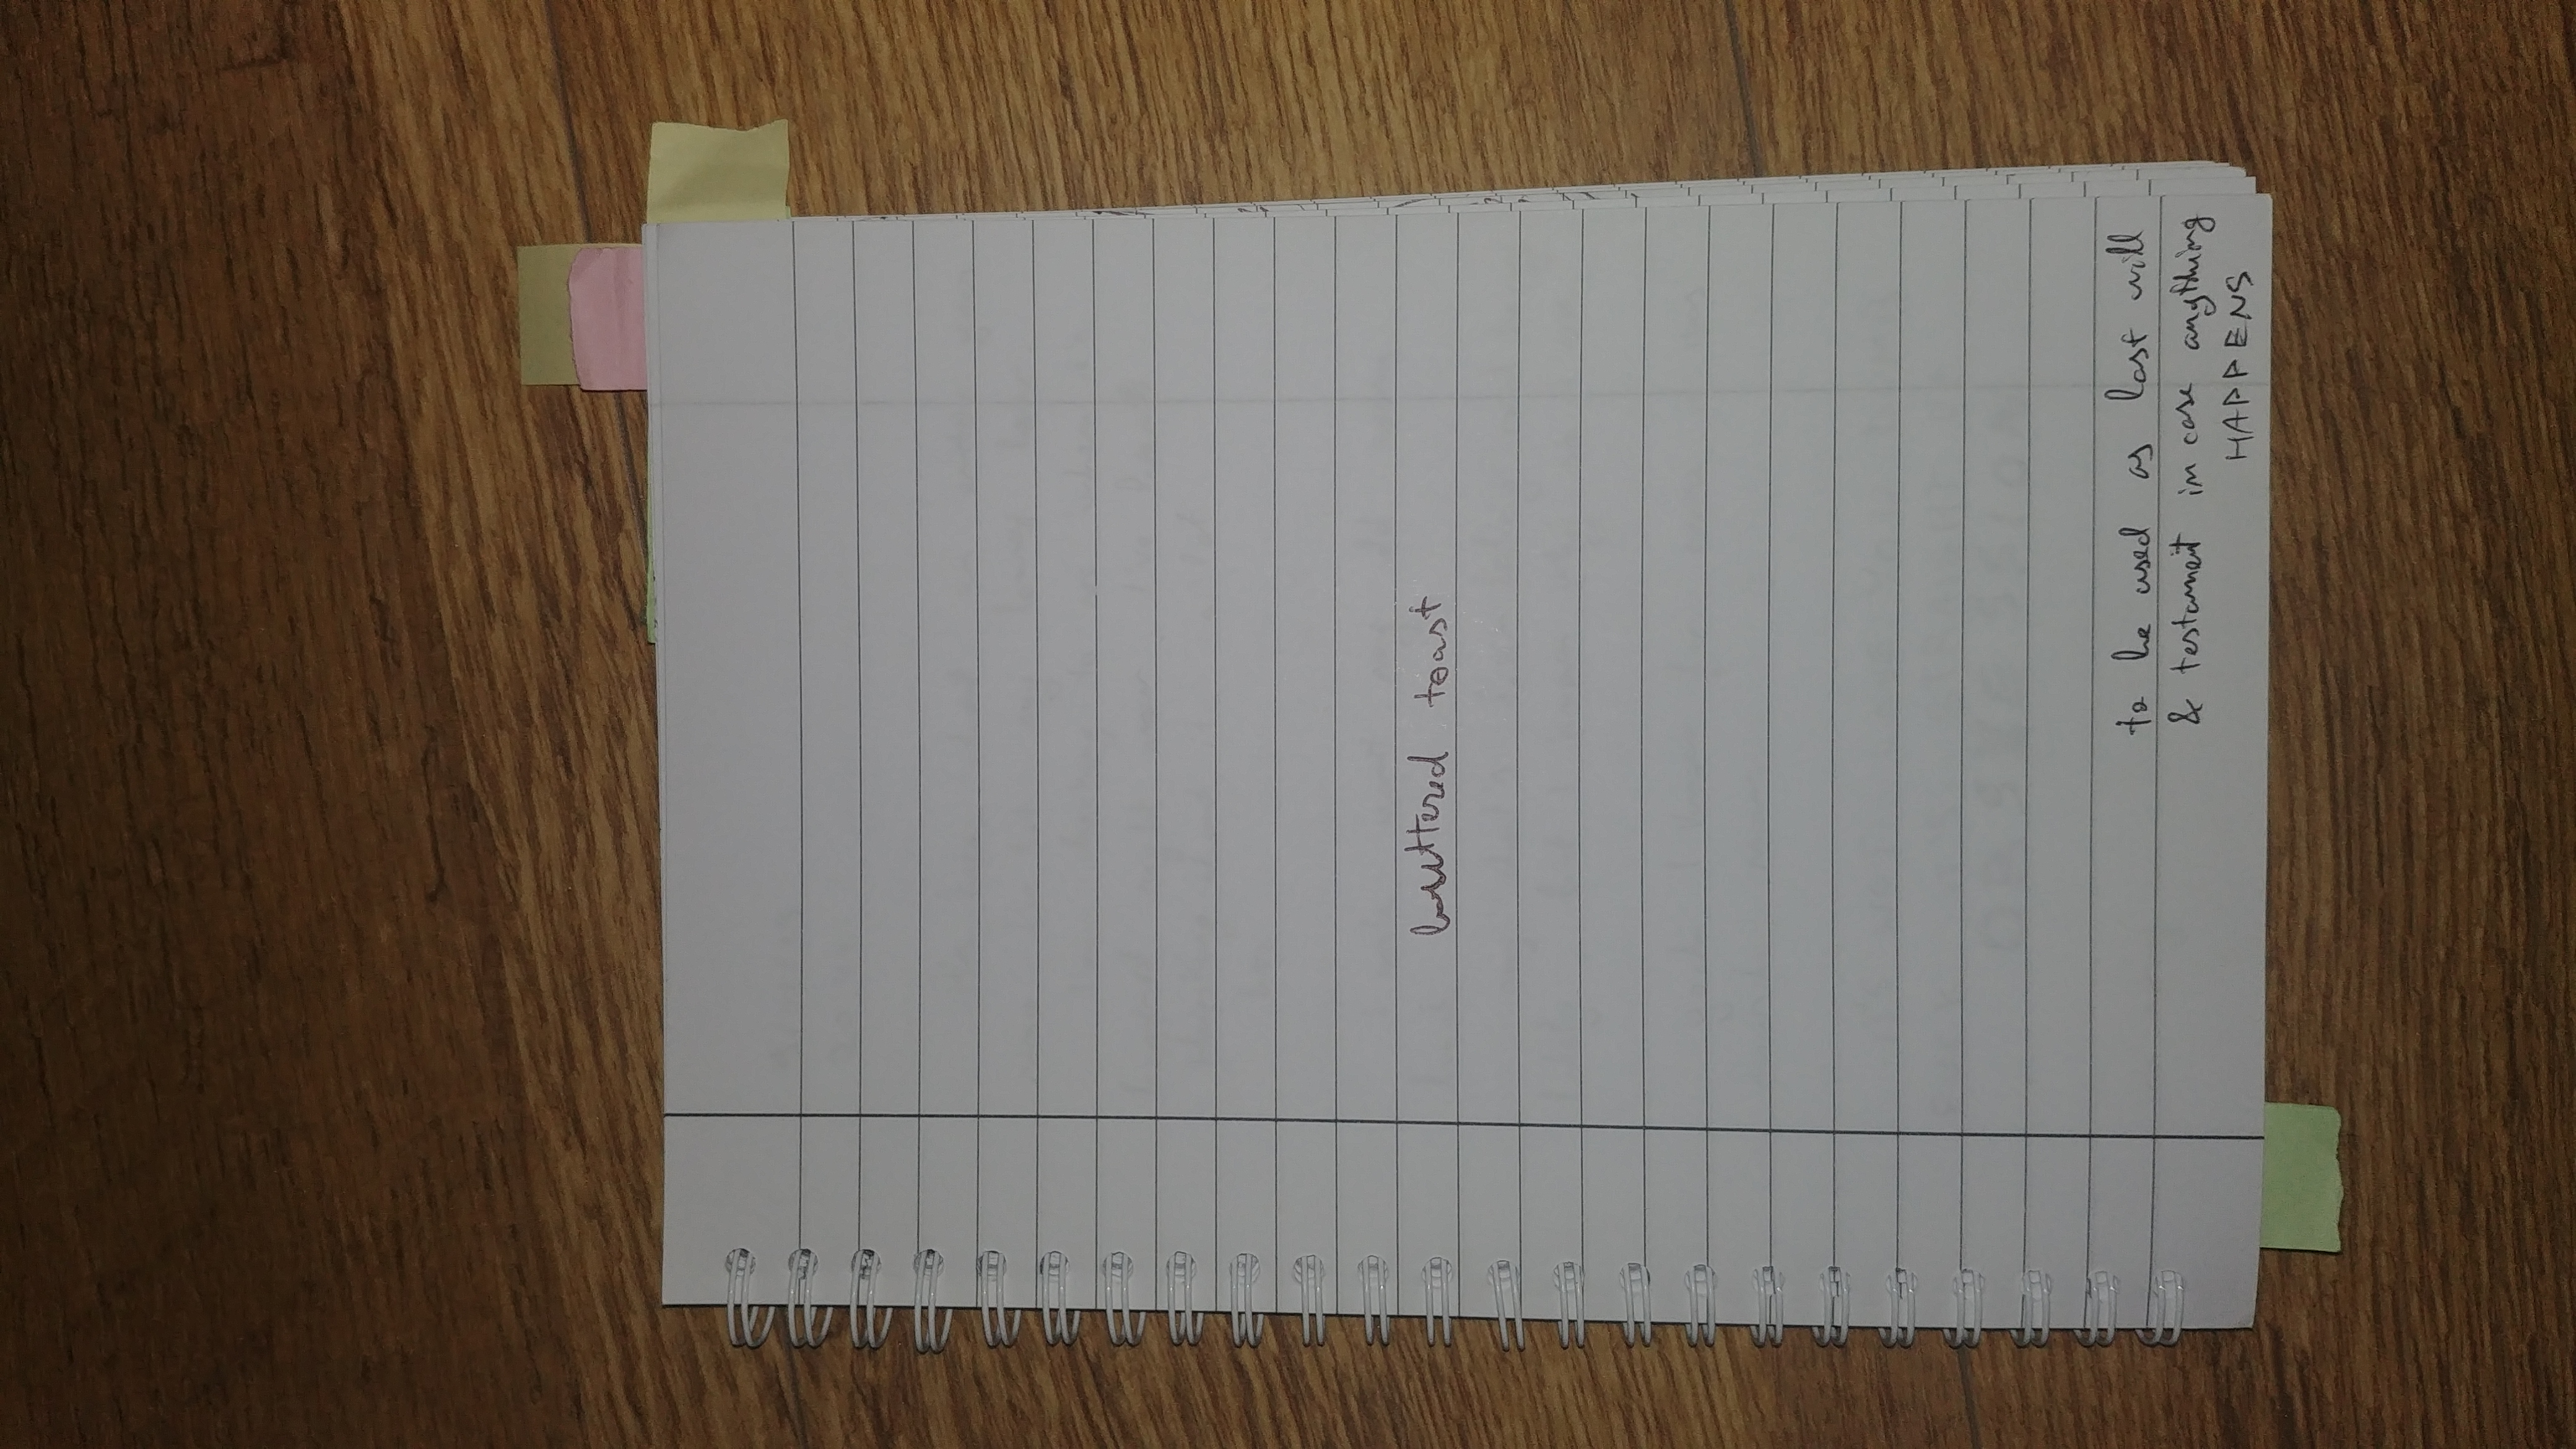 buttered toast
to be used as last will
& testament in case anything
HAPPENS